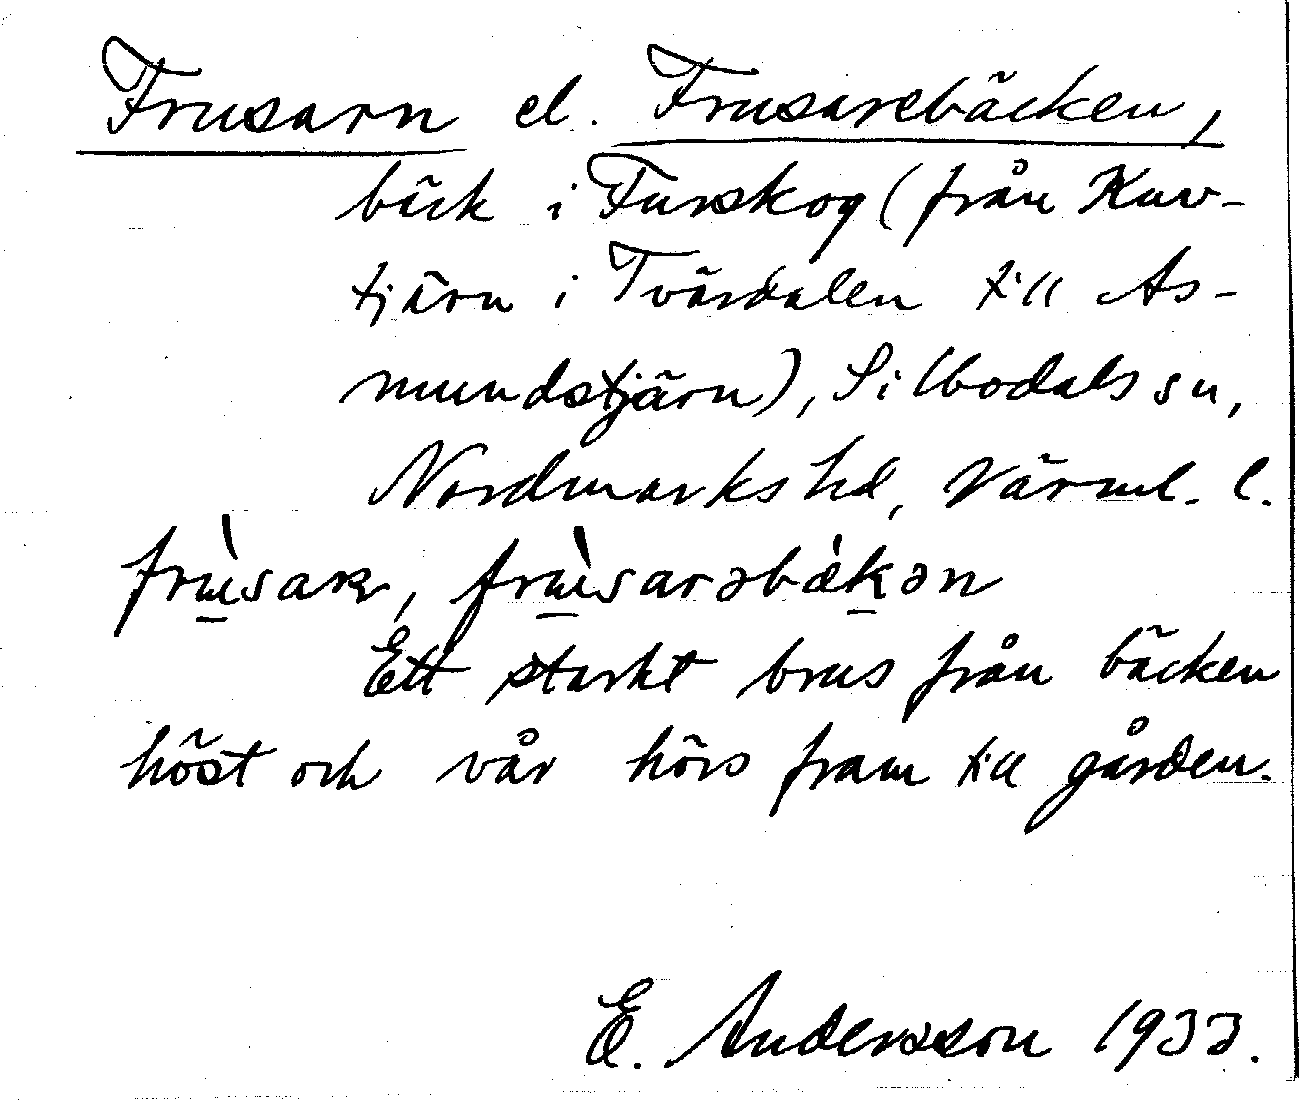 Frusarn el. Frusarebäcken,
bäck i Furskog (från Kuv-
tjärn i Tvärdalen till As-
mundstjärn), Silbodals sn,
Nordmarks hd, Värml. l.
frɯ̀sar, frɯ̀sarəbækən
Ett starkt brus från bäcken
höst och vår hörs fram till gården.
E. Andersson 1933.